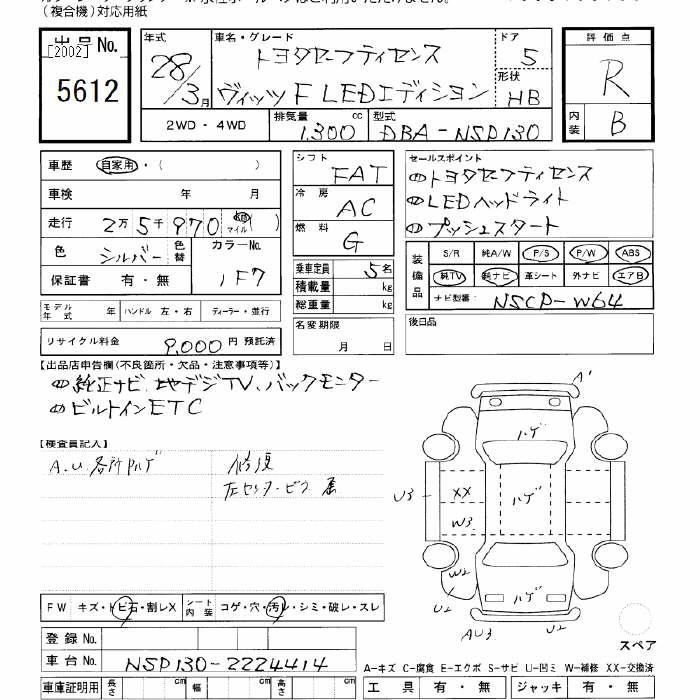 (複合機)対応用紙
出品No.
[2002]
5612
年式
28/3月
車名・グレード
トヨタセーフティセンス
ヴィッツ F LEDエディション
ドア
5
形状
HB
評価点
R
内装
B
2WD・4WD
排気量
1,300 cc
型式
DBA-NSP130
車歴 自家用・( )
車検 年 月
走行 2万5千970 km マイル ( )
色 シルバー 色替
カラーNo.
1F7
保証書 有・無
モデル年式 年 ハンドル 左・右 ディーラー・並行
リサイクル料金 9,000 円 預託済
シフト
FAT
冷房
AC
燃料
G
乗車定員 5名
積載量 kg
総重量 kg
名変期限
月 日
セールスポイント
①トヨタセーフティセンス
②LEDヘッドライト
③プッシュスタート
装備品
S/R 純A/W P/S P/W ABS
純TV 純ナビ 革シート 外ナビ エアB
ナビ型番: NSCP-W64
後日品
【出品店申告欄(不良箇所・欠品・注意事項等)】
①純正ナビ、地デジTV、バックモニター
②ビルトインETC
【検査員記入】
A.U 各所ハゲ
修復
左センターピラー
A'
ハゲ
ハゲ
U3
XX
W3
ハゲ
W2
U2
AU3
U2
スペア
FW キズ・トビ石・割レX
シート内装 コゲ・穴・汚レ・シミ・破レ・スレ
登録No.
車台No. NSP130-2224414
車庫証明用 長さ cm 幅 cm 高さ cm
A-キズ C-腐食 E-エクボ S-サビ U-凹ミ W-補修 XX-交換済
工具 有・無 ジャッキ 有・無